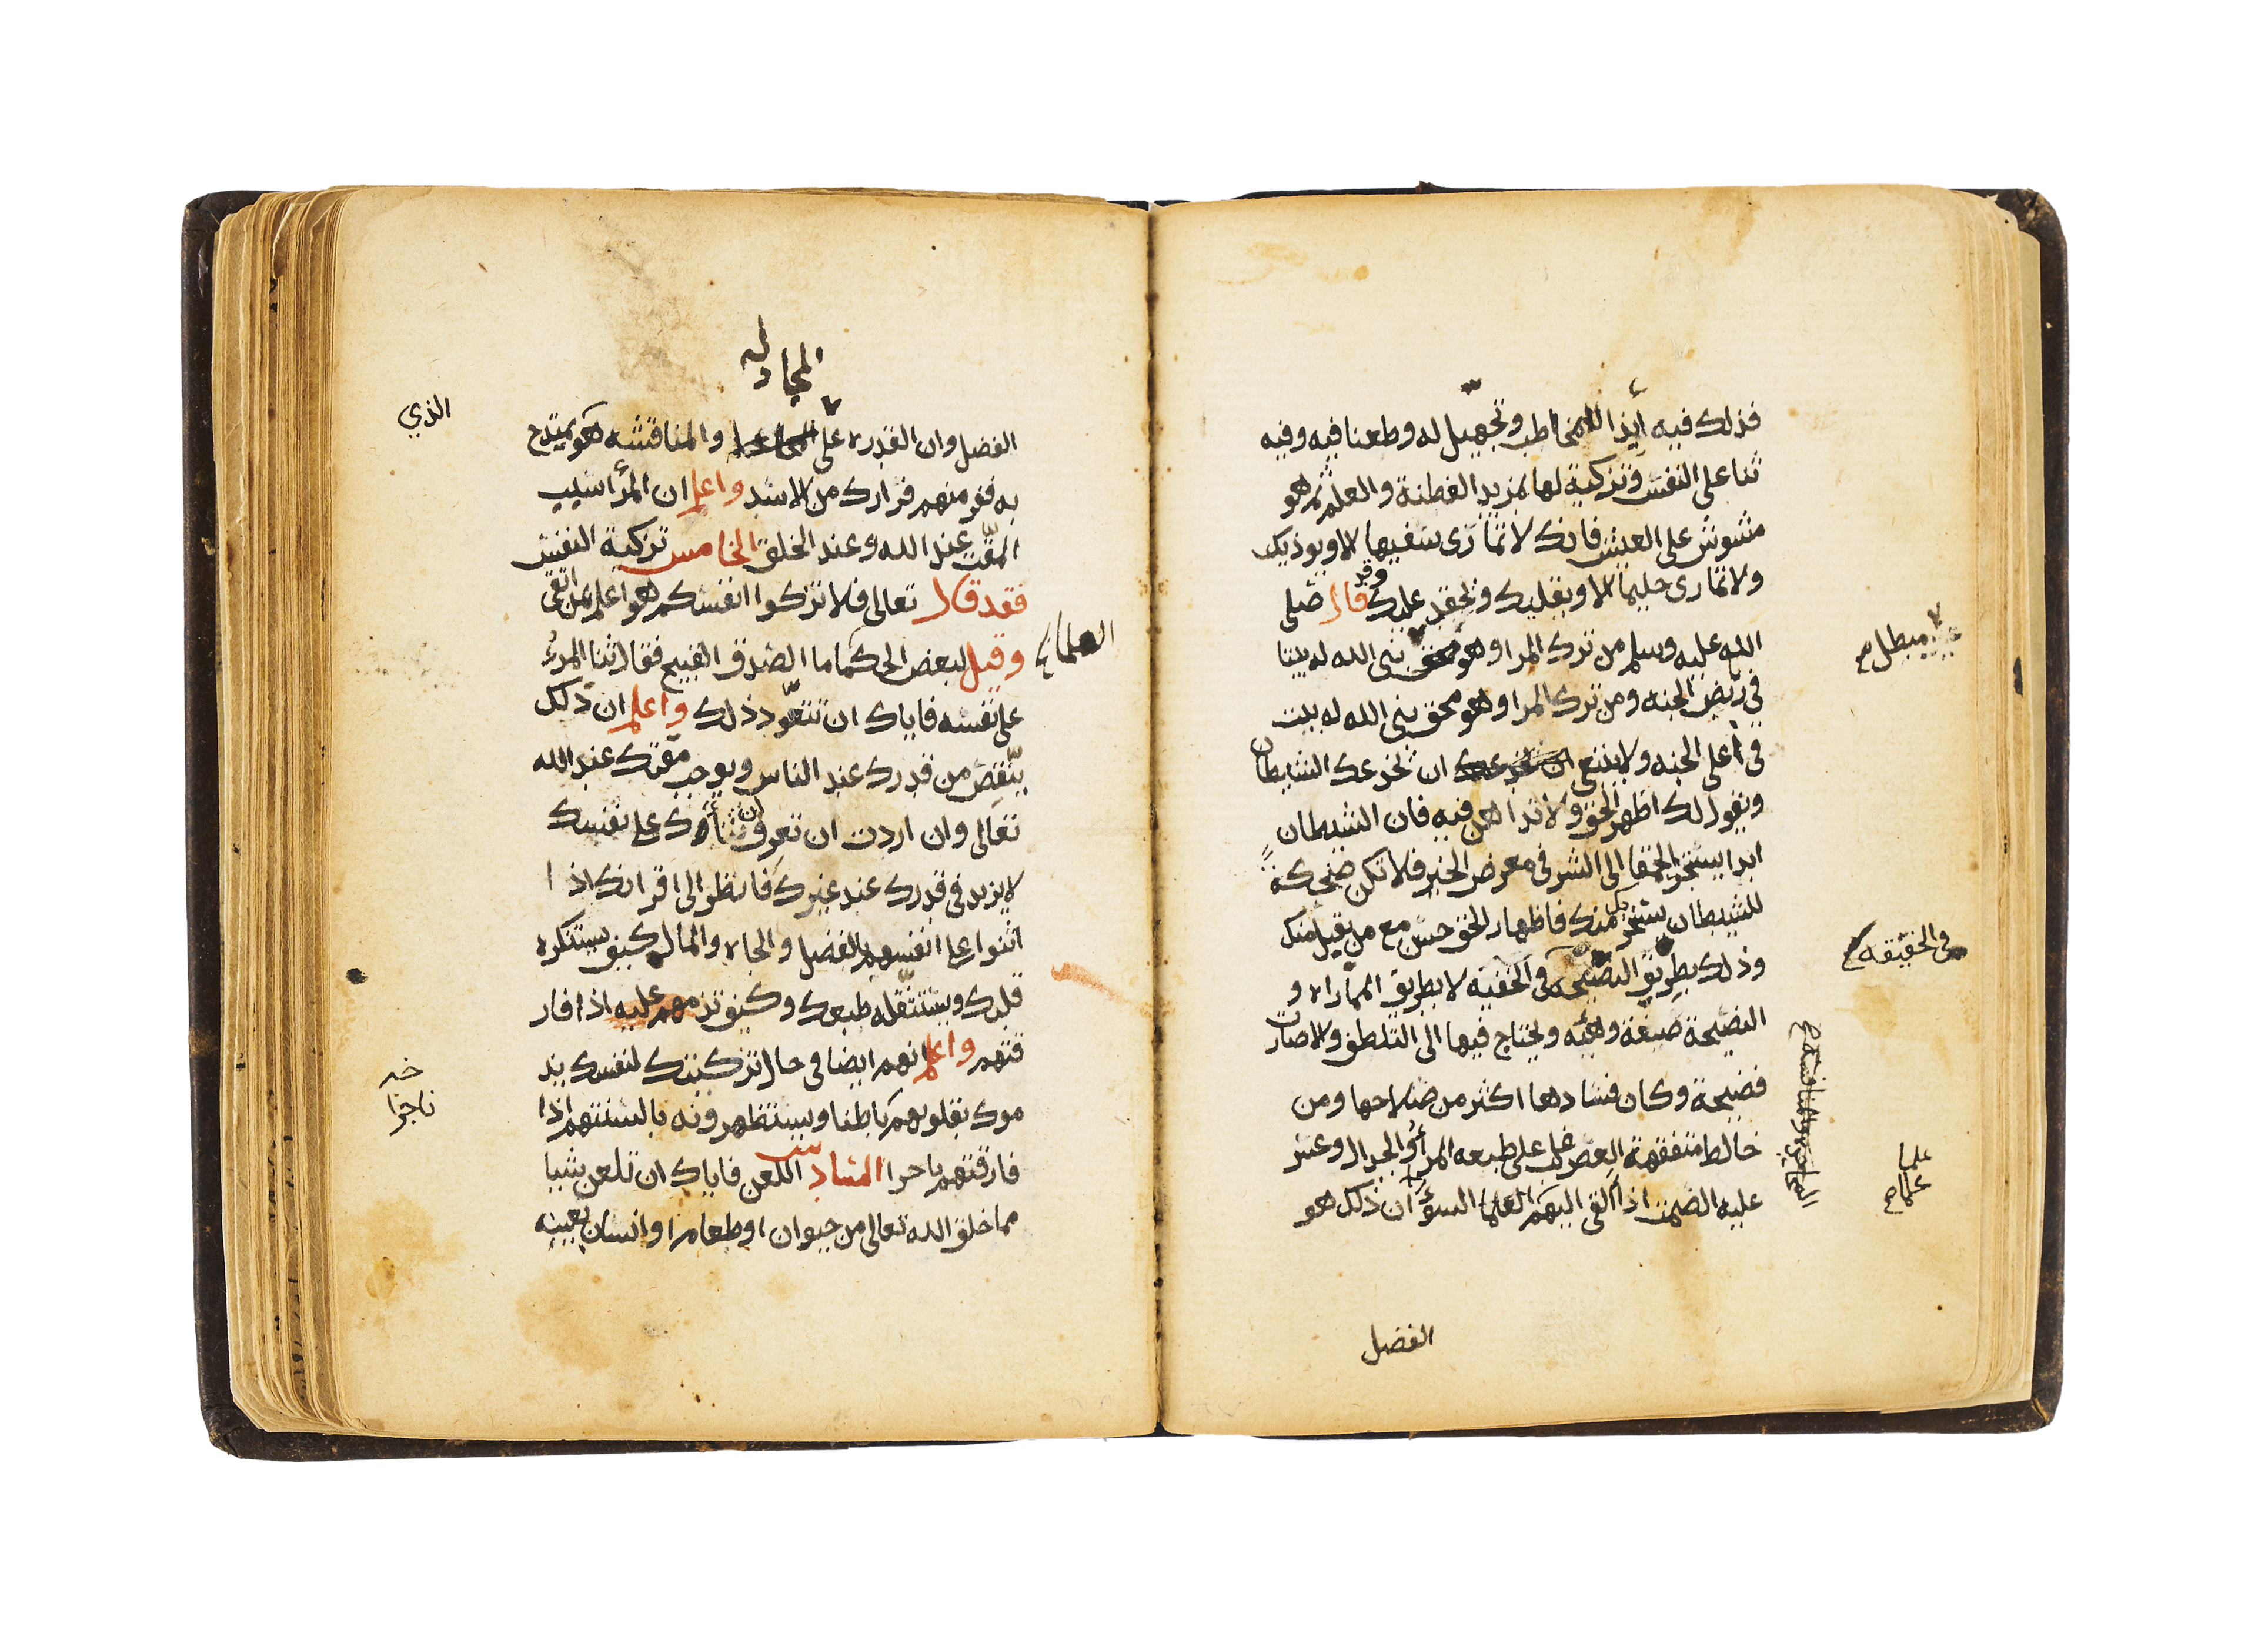 فذلك فيه أيذا للمخاطب وتجهيل له وطعنا فيه وفيه
ثنا على النفس وتزكية لها بمزيد الفطنة والعلم ثم هو
مشوش على العيش فانك لا تمازى سفيها الا ويوذيك
ولا تمارى حليما الا ويقليك ويحقد عليك وقد قال صلى
الله عليه وسلم من ترك المرا وهو بنى الله له بيتا
مبطل صح
في ربض الجنه ومن ترك المرا وهو محق بنى الله له بيت
في اعلى الجنه ولا ينبغي ان يخدعك الشيطان
ويقول لك اظهر الحق ولا تداهن فيه فان الشيطان
ابدا يستجر الحمقا الى الشر في معرض الخير فلا تكن ضحكة
للشيطان يسخر منك فاظهار الحق حسن مع من يقبل منك
وذلك بطريق النصيحة في الخفيه لا بطريق المماراه و
في الحقيقه
النصيحة صيغة وهيئه ويحتاج فيها الى التلطف والا صارت
فضيحة وكان فسادها اكثر من صلاحها ومن
خالط متفقهة العصر غلب على طبعه المرأ والجدال وعسر
علما
عليه الصمت اذ القى اليهم العلما السوء ان ذلك هو
الفضل
المجادله
الفضل وان القدره على والمناقشه هو يمتدح
الذي
به ففر منهم فرارك من الاسد واعلم ان المرأ سبب
المقت عند الله وعند الخلق الخامس تزكية النفس
فقد قال تعالى فلا تزكوا انفسكم هو اعلم بمن اتقى
وقيل لبعض الحكما ما الصدق القبيح فقال ثنا المرء
العلما
على نفسه فاياك ان تتعود ذلك واعلم ان ذلك
ينقص من قدرك عند الناس ويوجب مقتك عند الله
تعالى وان اردت ان تعرف ان ثنأك على نفسك
لا يزيد في قدرك عند غيرك فانظر الى اقرانك اذا
اثنوا على انفسهم بالفضل والجاه والمال كيف يستنكره
قلبك ويستثقله طبعك وكيف تذمهم عليه اذا فار
قتهم واعلم انهم ايضا في حال تزكيتك لنفسك يذ
موك بقلوبهم باطنا ويستظهرونه بالسنتهم اذا
فارقتهم ناحرا السادس اللعن فاياك ان تلعن شيا
مما خلق الله تعالى من حيوان او طعام او انسان بعينه